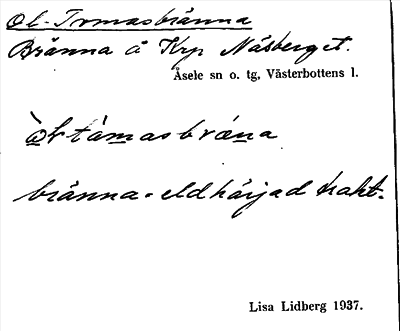 Ol-Tomasbränna
Bränna å Krp Näsberget.
Åsele sn o. tg, Västerbottens l.
bränna = eldhärjad trakt.
Lisa Lidberg 1937.